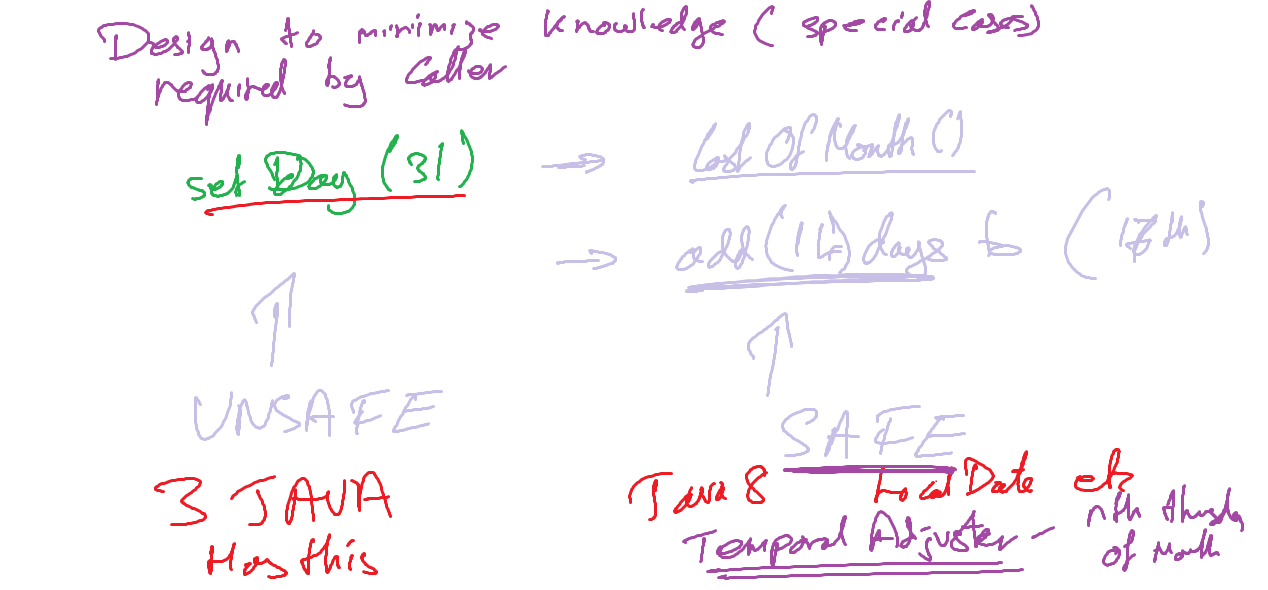 Design to minimize Knowledge ( special cases)
required by Caller
set Day (31) → Last Of Month ()
→ add(14) days to (17th)
UNSAFE
SAFE
3 JAVA
Has this
Java 8 Local Date etc
Temporal Adjuster – nth thursday
of Month